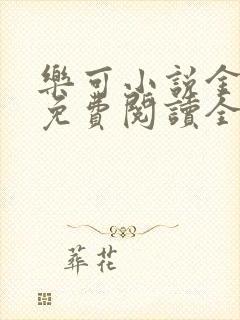 樂可小說全
免費閱讀全
葬花